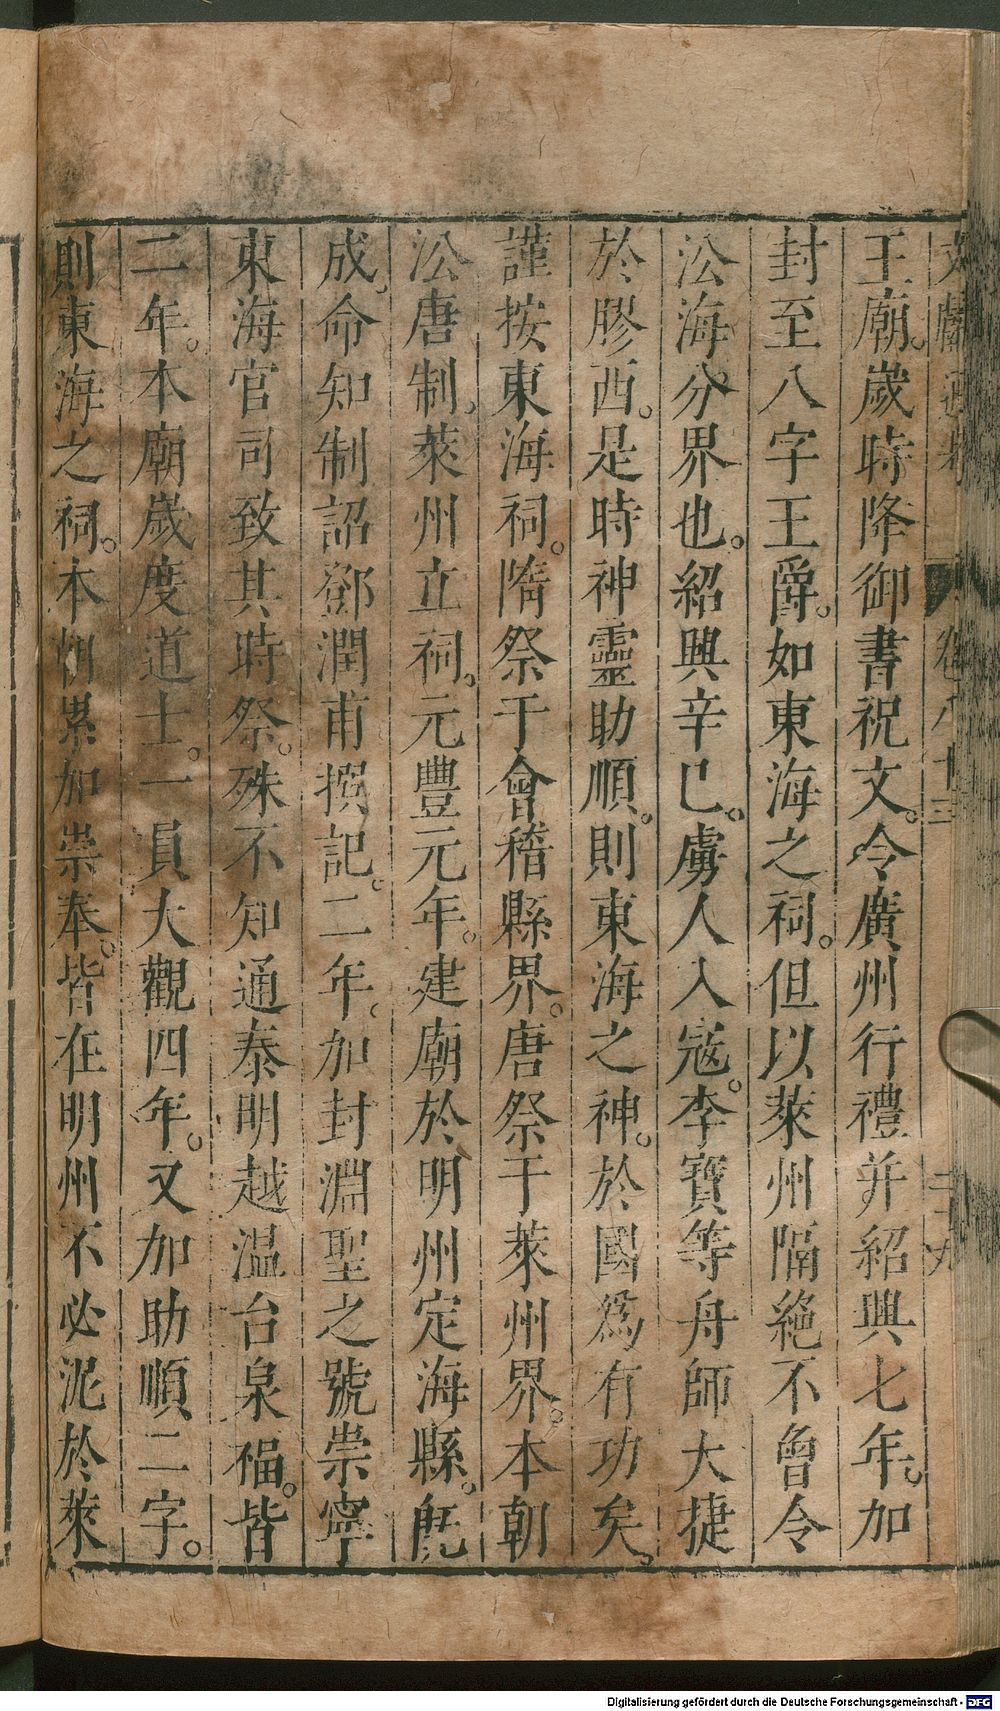 文獻通考　卷八十三　二十九
王廟。歲時降御書祝文。令廣州行禮并紹興七年。加
封至八字王爵。如東海之祠。但以萊州隔絶不曾令
㳂海分界也。紹興辛巳。虜人入寇。李寶等舟師大捷
於膠西。是時神靈助順。則東海之神。於國為有功矣。
謹按東海祠。隋祭于會稽縣界。唐祭于萊州界。本朝
㳂唐制。萊州立祠。元豐元年。建廟於明州定海縣。旣
成。命知制詔鄧潤甫撰記。二年。加封淵聖之號崇寧
東海官司致其時祭。殊不知通泰明越温台泉福。皆
二年。本廟歲度道士。一員大觀四年。又加助順二字。
則東海之祠。本朝累加崇奉。皆在明州不必泥於萊
Digitalisierung gefördert durch die Deutsche Forschungsgemeinschaft - DFG